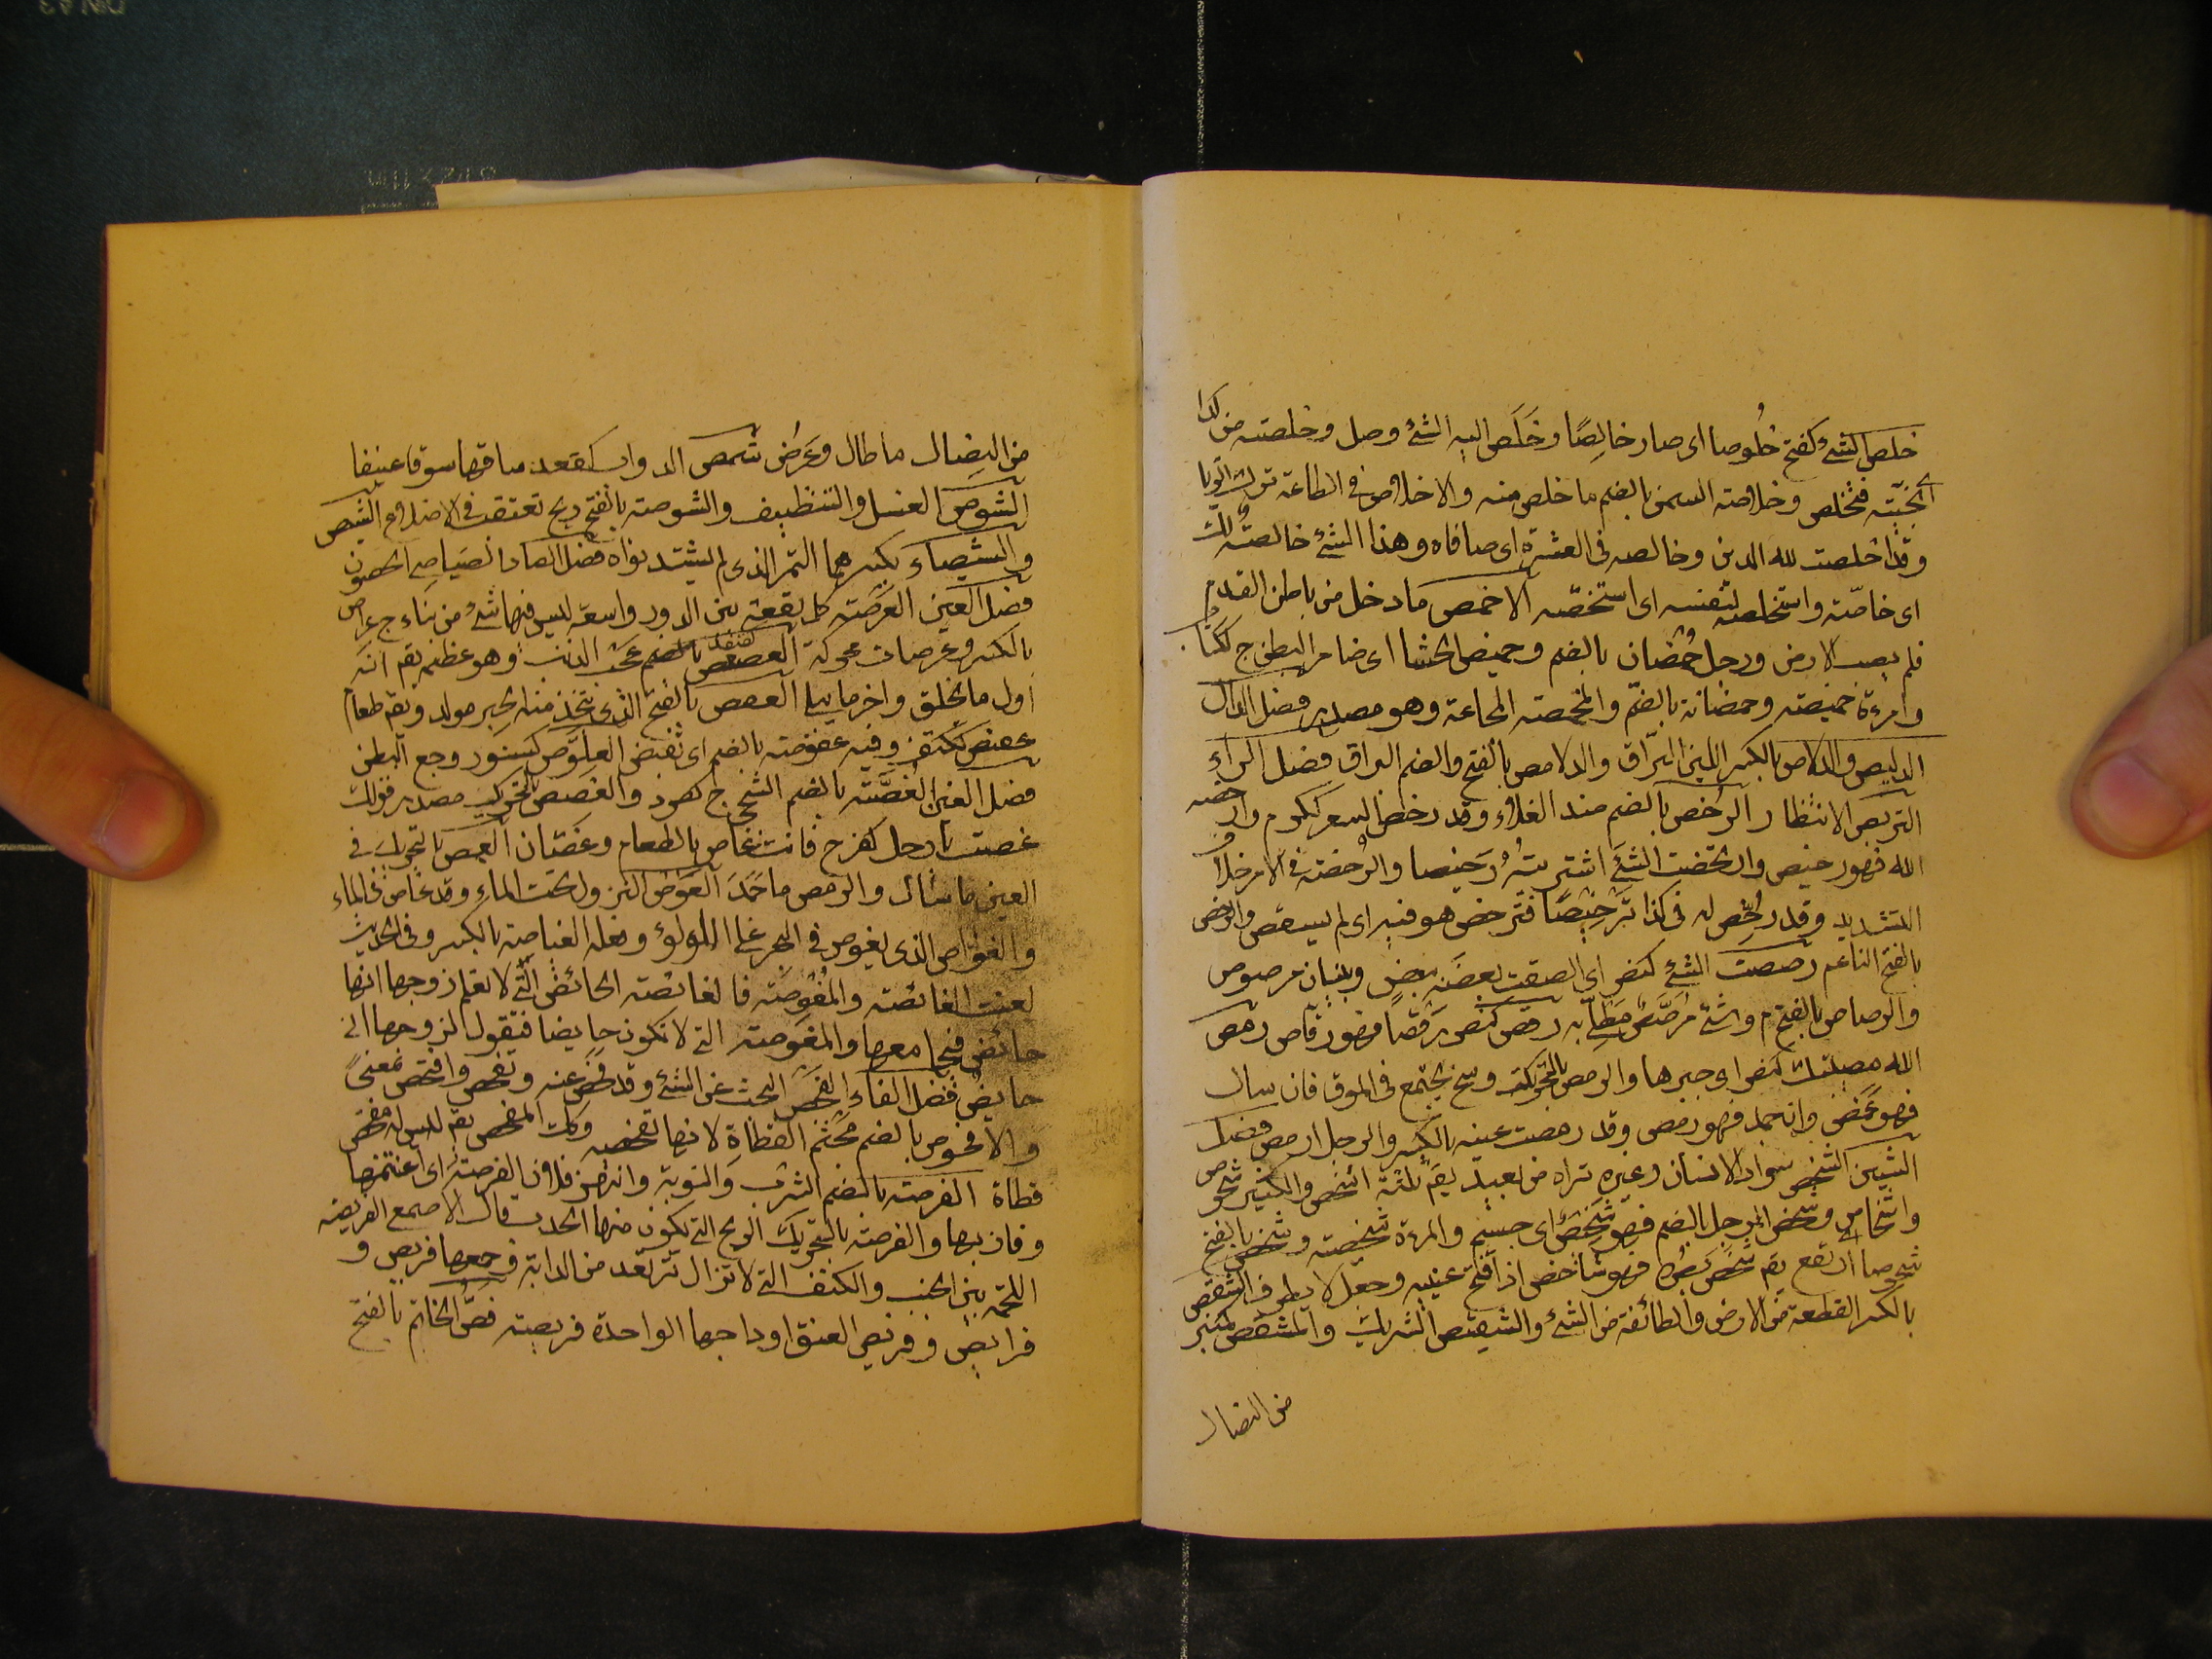 خلص الشئ كفتح خلوصا اى صار خالِصًا وخَلَص اليه الشئ وصل وخلصته من كذا
تخبّته فتخلص وخلاصته السمن بالضم ما خلص منه والاخلاص فى الطاعة ترك الريا
وقد اخلصت لله الدين وخالصه فى العشرة اى صافاه وهذا الشئ خالصةُ لك
اى خاصّة واستخلصه لنفسه اى استخصّه الاخمص ما دخل من باطن القدم
فلم يصب الارض ورجل خُمصان بالضم وخميص الحشا اى ضامر البطن ج ككتاب
وامرءة خميصته وخمصانة بالضم والمخمصته المجاعة وهو مصدر فصل الدال
الدليص والدلاص بالكسر اللين البرّاق والدلامص بالفتح والضم البراق فصل الراء
التربص الانتظار الرخص بالضم ضد الغلاء وقد رخص السعر ككرم وارخصه
الله فهو رخيص وارتخصت الشئ اشتريتُهُ رَخيصا والرُخصته فى الامر خلاف
التشديد وقد رُخّص له فى كذا ترْخِيصًا فترخص هو فيه اى لم يستقص والرخص
بالفتح الناعم رصصت الشئ كنصر اى الصقت بعضَه ببعض وبنيان مرصوص
والرصاص بالفتح م وشئ مُرَصَّصٌ مَطْلِىّ به رقص كنصر رَقصًا فهو رقّاص رهص
الله مصيبتك كنصر اى جبرها والرمص بالتحريك وسخ يجتمع فى الموق فان سال
فهو غمص وان جمد فهو رمص وقد رمصت عينه بالكسر والرجل ارمص فصل
الشين الشخص سواد الانسان وغيره تراه من بعيد يقم ثلثة اشخص والكثير شخوص
واشخاص وشخص الرجل بالضم فهو شَخِيْص اى جسيم والمرءة شخيصته وشخص بالفتح
شخوصا ارتفع يقم شخَصَ بَصَرُه فهو شاخص اذا فتح عينيه وجعل لا يطرف الشقص
بالكسر القطعة من الارض والطائفة من الشئ والشقيص الشريك والمشقص كمنبر
من النصال
من النصال ما طال وعَرُض شمص الدواب كقعد ساقها سوقا عنيفا
الشوص الغسل والتنظيف والشوصته بالفتح ريح تعتقب فى الاضلاع الشيص
والشيصاء بكسرهما التمر الذى لم يشتد نواه فصل الصاد الصَياصى الحصون
فصل العين العَرْصته كل بقعة بين الدور واسعة ليس فيها شئ من بناء ج عراص
بالكسر وعرصات محركة العصعص كقنفذ بالضم عَجْبُ الذنب وهو عظم يقم انه
اول ما يخلق واخر ما يبلى العفص بالفتح الذى يتخذ منه الحبر مولد ويقم طعام
عفص ككتف وفيه عفوصته بالضم اى تقبض العلوص كسنور وجع البطن
فصل الغين الغُصَّته بالضم الشجى ج كصرد والغَصَص بالتحريك مصدر قولك
غصصت يا رجل كفرح فانت غاص بالطعام وغصّان الغمص بالتحريك فى
العين ما سال والرمص ما جَمَدَ الغَوص النزول تحت الماء وقد غاص فى الماء
والغوّاص الذى يغوص فى البحر على اللؤلؤ وفعله الغياصته بالكسر وفى الحديث
لعنت الغائصته والمُغَوِّصَته فالغائصته الحائض التى لا تعلم زوجها انها
حائض فيجامعها والمغوصته التى لا تكون حايضا فتقول لزوجها انى
حايض فصل الفاء الفحص البحث عن الشئ وقد فحص عنه وتفحص وافتحص بمعنىً
والافحوص بالضم مَجْثَم القطاة لانها تفحصه وكك المفحص يقم ليس له مفحص
قطاة الفرصته بالضم الشرب والنوبة وانتهز فلان الفرصتهَ اى اغتنمها
وفاز بها والفرصته بالتحريك الريح التى يكون منها الحدب قال الاصمعى الفريصته
اللحمة بين الجنب والكتف التى لا تزال ترتعد من الدابة وجمعها فريص و
فرايص وفريص العنق اوداجها الواحدة فريصته فصّ الخاتم بالفتح